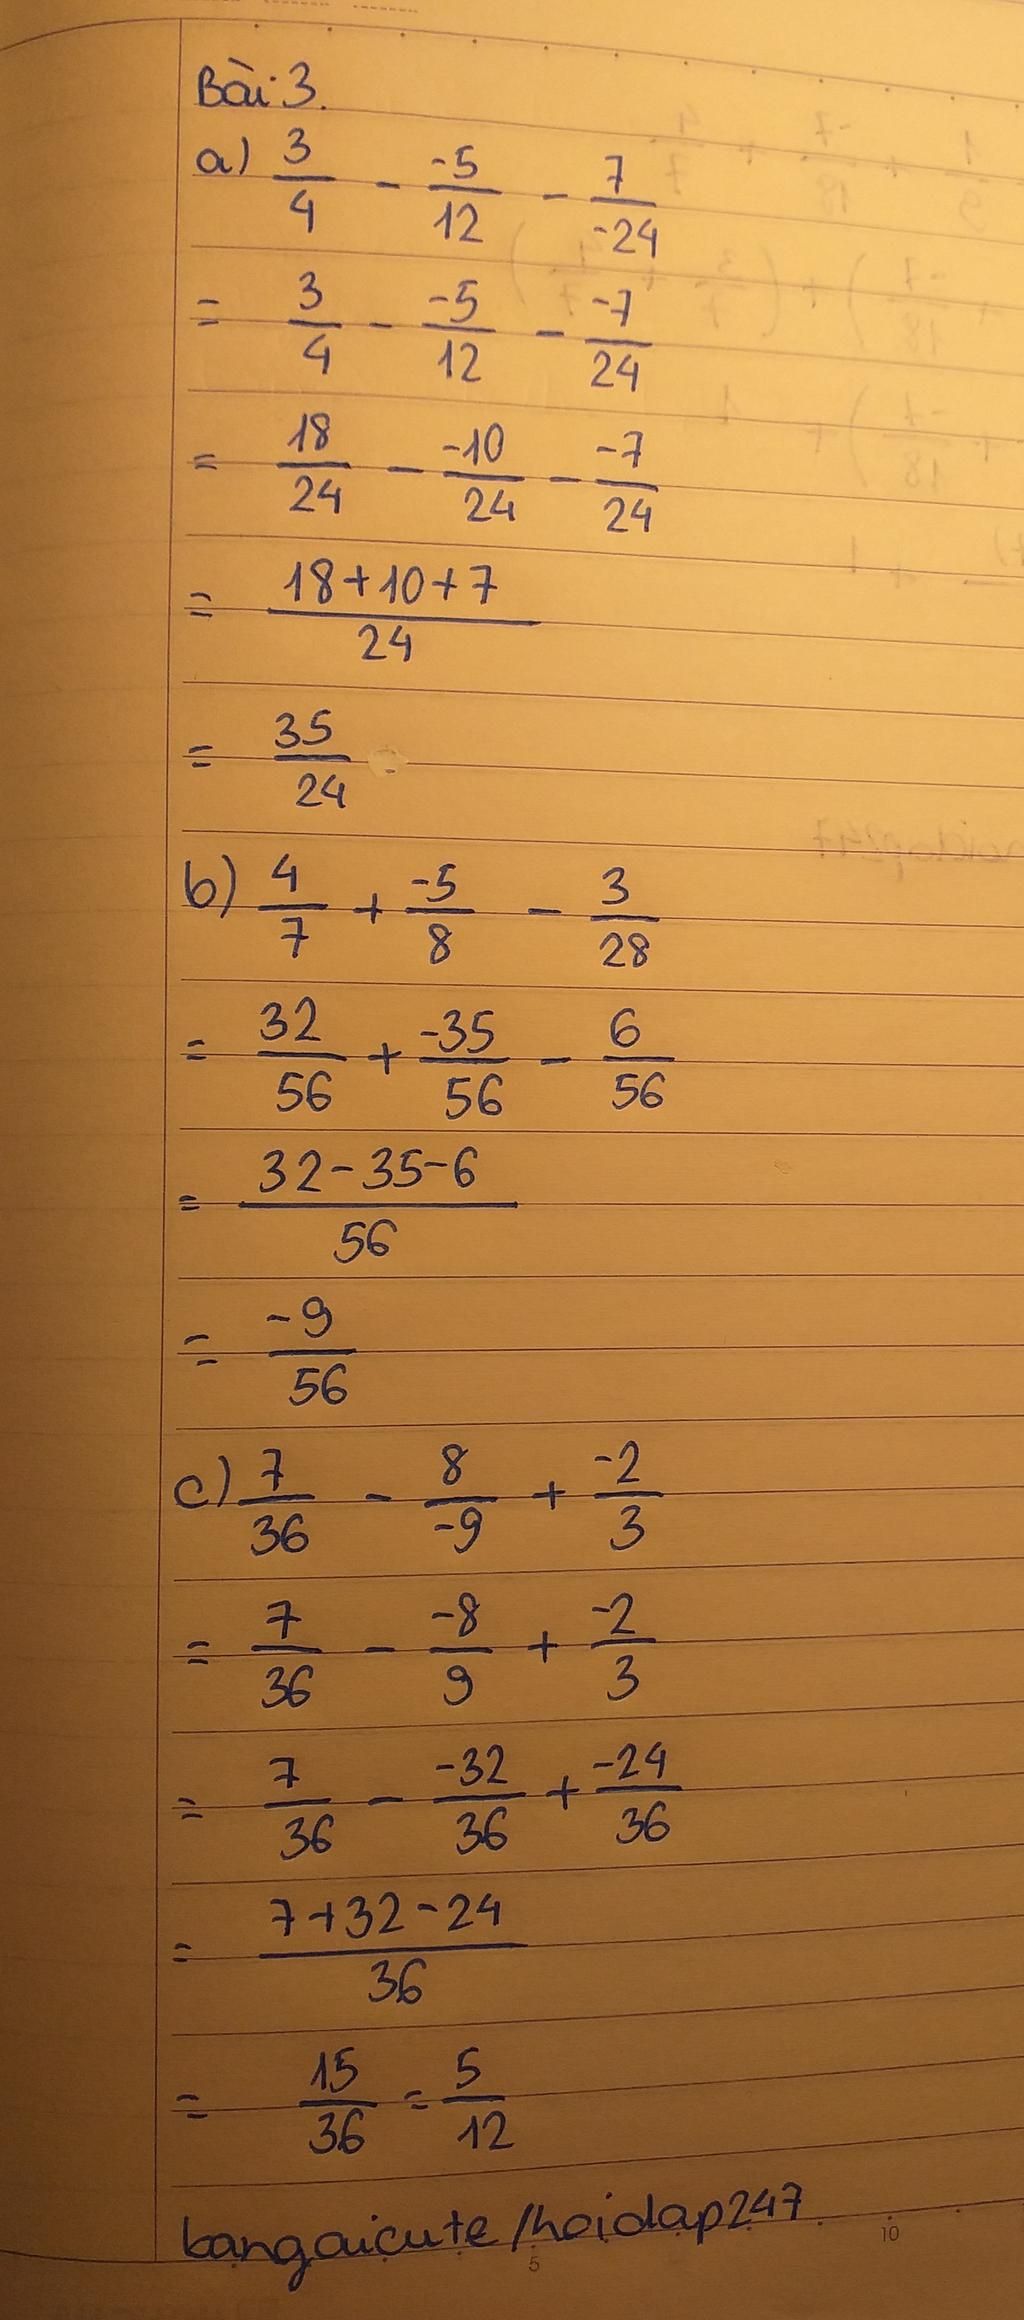 Bài 3.
a) 3/4 - -5/12 - 7/-24
= 3/4 - -5/12 - -7/24
= 18/24 - -10/24 - -7/24
= 18+10+7/24
= 35/24
b) 4/7 + -5/8 - 3/28
= 32/56 + -35/56 - 6/56
= 32-35-6/56
= -9/56
c) 7/36 - 8/-9 + -2/3
= 7/36 - -8/9 + -2/3
= 7/36 - -32/36 + -24/36
= 7+32-24/36
= 15/36 = 5/12
bangaicute/hoidap247
5 10